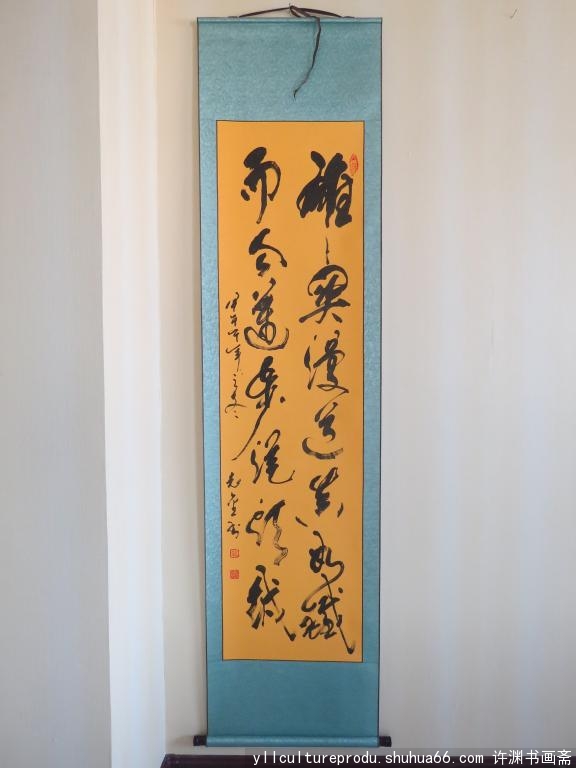 雄关漫道真如铁
而今迈步从头越
甲午年之冬
yllcultureprodu.shuhua66.com 许渊书画斋